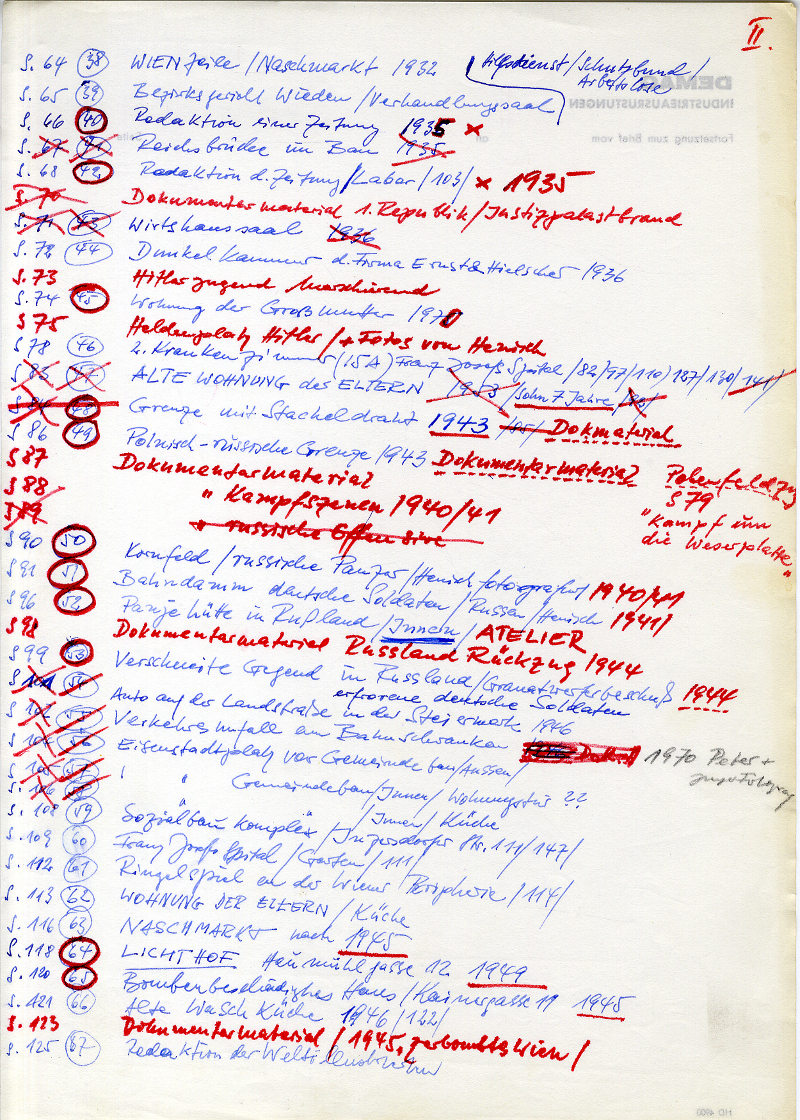 II.
S. 64 38 WIENZeile / Naschmarkt 1932 Hilfsdienst / Schutzbund / Arbeitslose
S. 65 39 Bezirksgericht Wieden / Verhandlungssaal
S. 66 40 Redaktion einer Zeitung 1935 x
S. 67 41 Reichsbrücke im Bau 1935
S. 68 42 Redaktion d. Zeitung / Labor / 103 / x 1935
S. 70 Dokumentarmaterial 1. Republik / Justizpalastbrand
S. 71 43 Wirtshaussaal 1936
S. 72 44 Dunkelkammer d. Firma Ernst & Hielscher 1936
S. 73 Hitlerjugend Marschierend
S. 74 45 Wohnung der Großmutter 1970
S 75 Heldenplatz Hitler / + Fotos von Henisch
S 78 46 2. Krankenzimmer (15A) Franz Josefs Spital / 82 / 97 / 110 / 127 / 130 / 141 /
S. 83 47 ALTE WOHNUNG des ELTERN 1953 / Sohn 7 Jahre /
48 Grenze mit Stacheldraht 1943 / 85 / Dokmaterial
S 86 49 Polnisch-russische Grenze 1943 Dokumentarmaterial
S 87 Dokumentarmaterial
S 88 " Kampfszenen 1940/41
S 89 " russische Offensive
Polenfeldzug
S 79
"Kampf um
die Westerplatte
"
S 90 50 Kornfeld / russische Panzer / Henisch fotografiert 1940/41
S 91 51 Bahndamm deutsche Soldaten / Russen / Henisch 1941 /
S 96 52 Panjehütte in Rußland / Innen / ATELIER
S 98 Dokumentarmaterial Russland Rückzug 1944
S 99 53 Verschneite Gegend in Russland / Granatwerferbeschuß 1944
erfrorene deutsche Soldaten
S 101 54 Auto auf der Landstraße in der Steiermark 1946
S. 102 55 Verkehrsunfall am Bahnschranken
56 Eisenstadtplatz vor Gemeindebau / Aussen / 1970 Peter +
57 " Gemeindebau / Innen / Wohnungstür ??
58 " / Innen / Küche
S. 108 59 Sozialbau Komplex / Inzersdorfer Str. 111 / 147 /
S. 109 60 Franz Josefs Spital / Garten / 111 /
S. 112 61 Ringelspiel an der Wiener Peripherie / 114 /
S. 113 62 WOHNUNG DER ELTERN / Küche
S. 116 63 NASCHMARKT nach 1945
S. 118 64 LICHTHOF Heumühlgasse 12 1949
S. 120 65 Bombenbeschädigtes Haus / Kainergasse 11 1945
S. 121 66 Alte Waschküche 1946 / 122 /
S. 123 Dokumentarmaterial / 1945, zerbombtes Wien /
S. 125 67 Redaktion der Weltillustrierten
DEMAG
INDUSTRIEAUSRÜSTUNGEN
Fortsetzung zum Brief vom
an